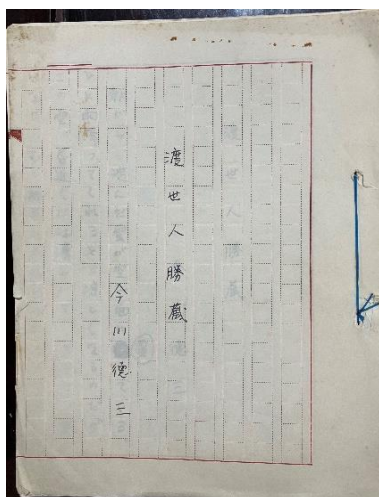 渡世人勝蔵
今川徳三